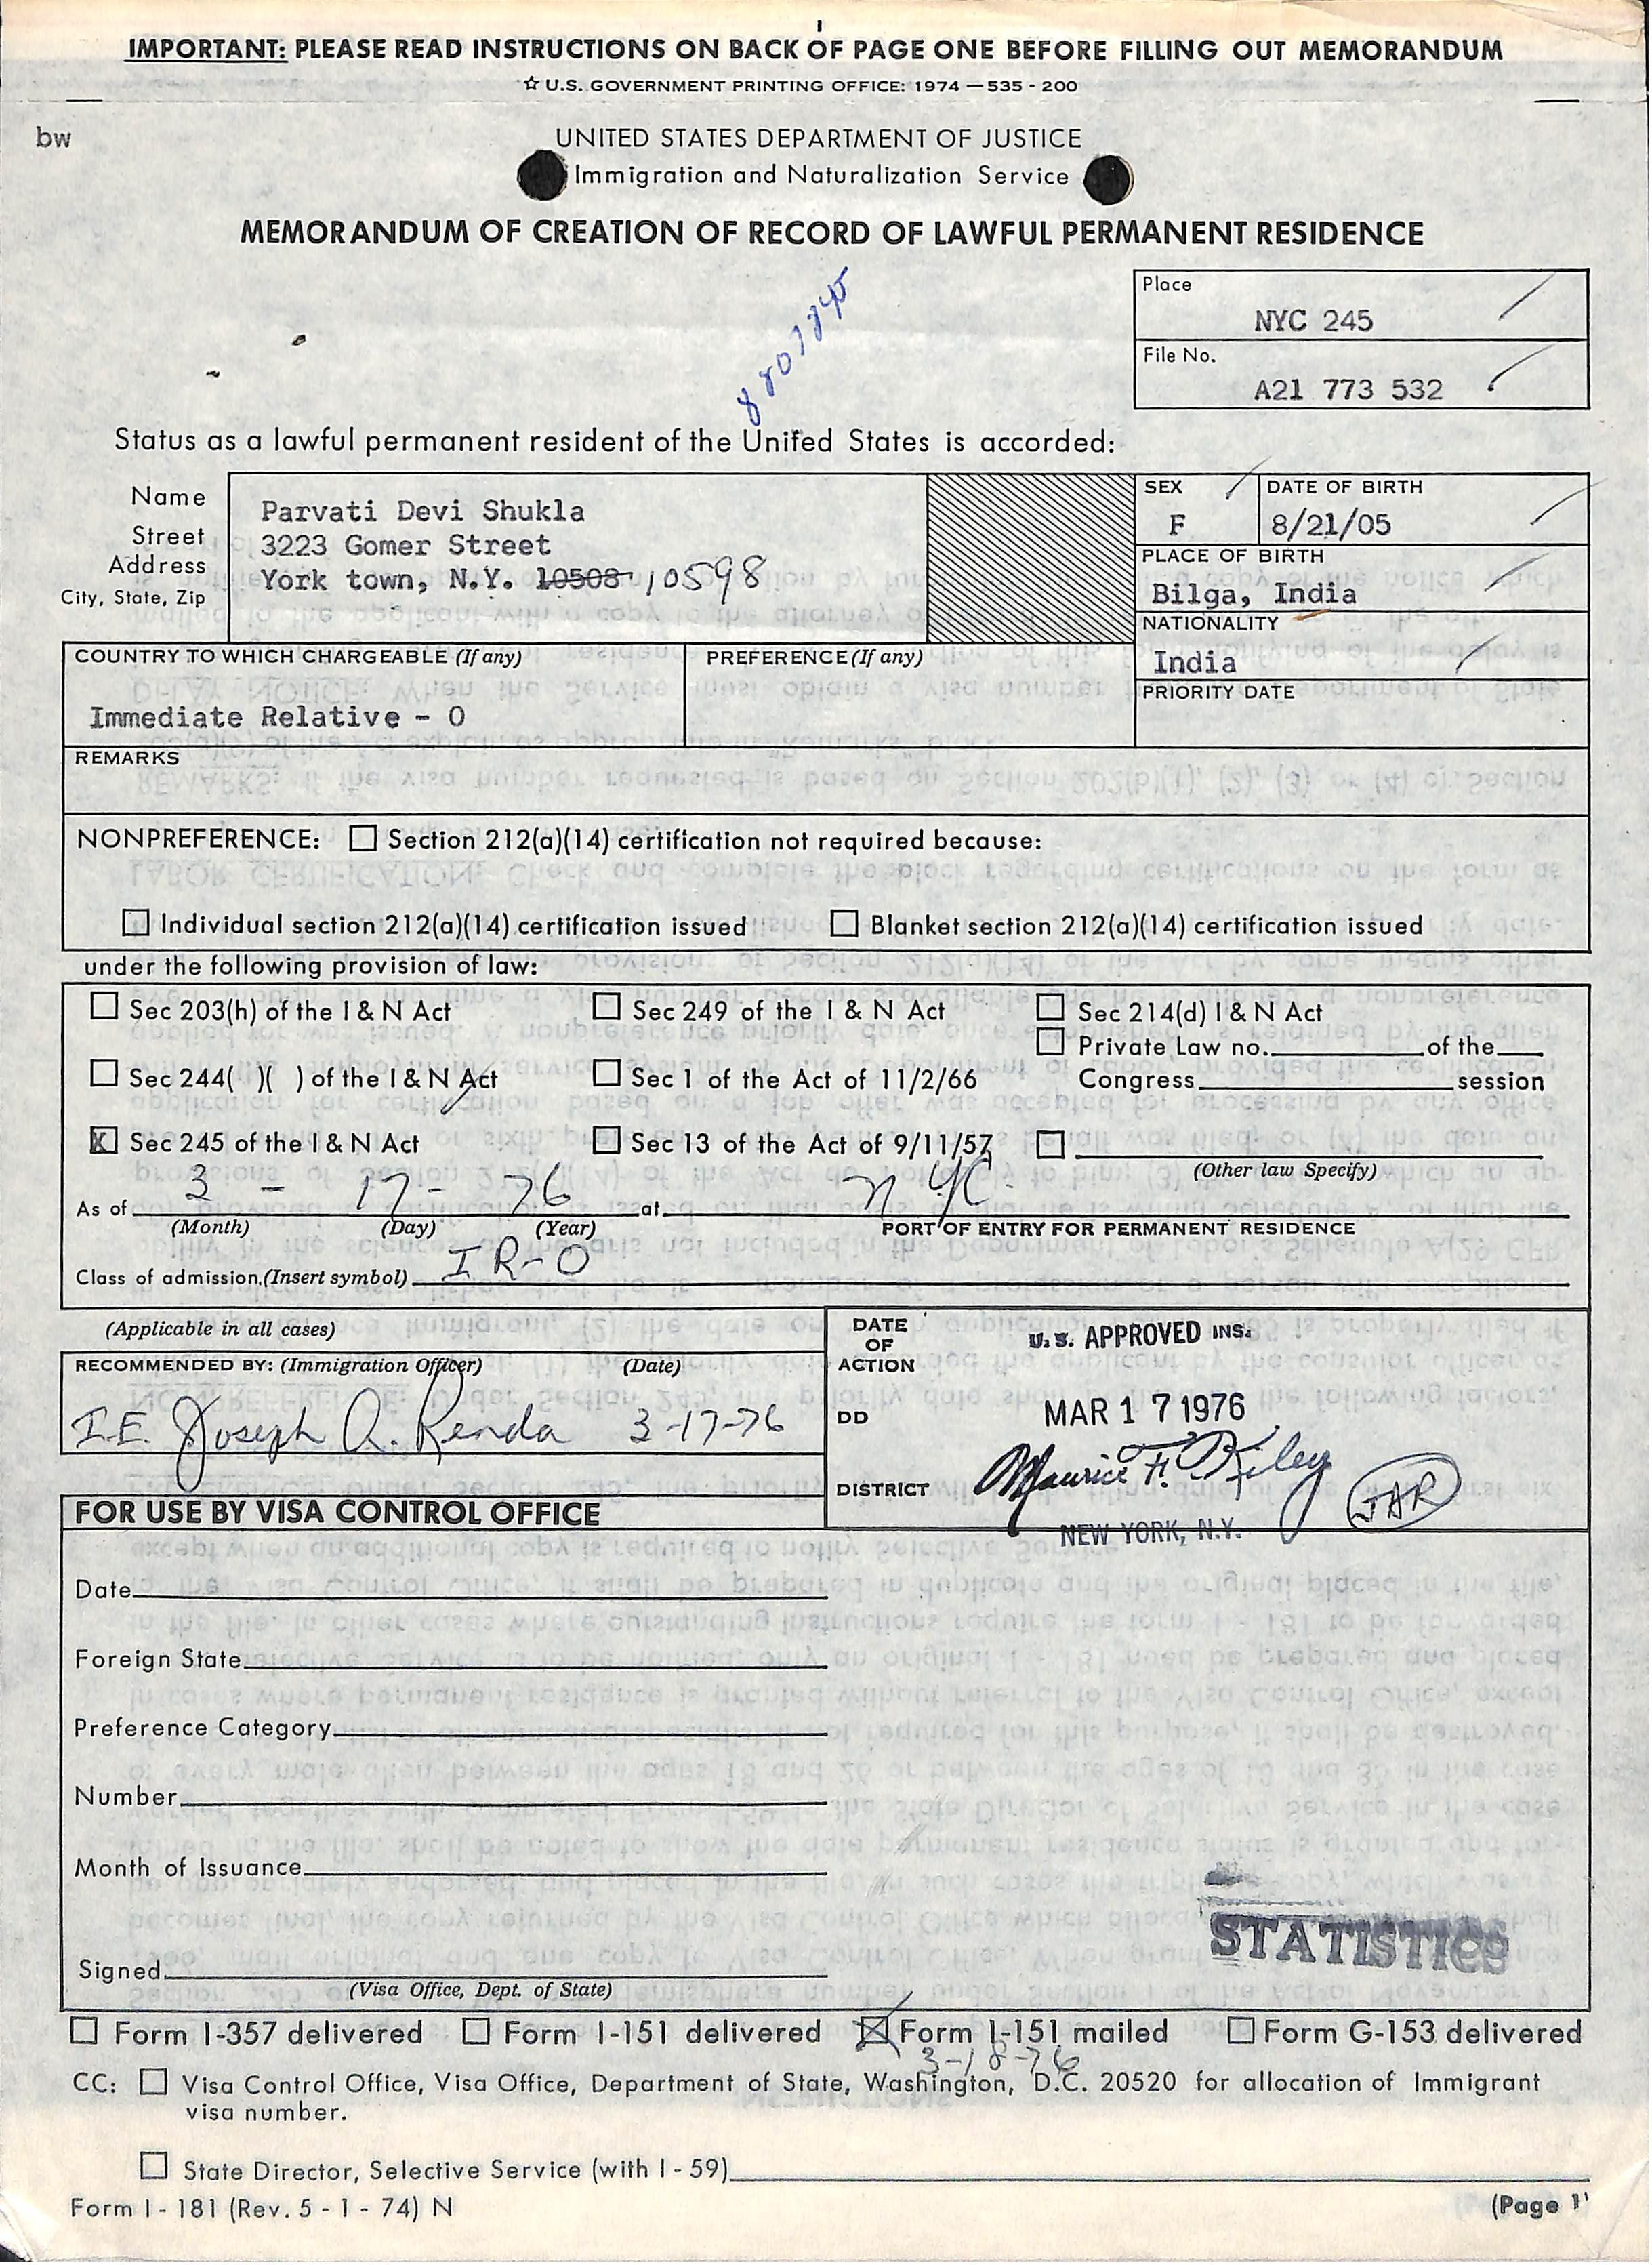 IMPORTANT: PLEASE READ INSTRUCTIONS ON BACK OF PAGE ONE BEFORE FILLING OUT MEMORANDUM
☆ U.S. GOVERNMENT PRINTING OFFICE: 1974 — 535 - 200
bw
UNITED STATES DEPARTMENT OF JUSTICE
Immigration and Naturalization Service
MEMORANDUM OF CREATION OF RECORD OF LAWFUL PERMANENT RESIDENCE
Place
NYC 245
File No.
A21 773 532
Status as a lawful permanent resident of the United States is accorded:
Name
Street
Address
City, State, Zip
Parvati Devi Shukla
3223 Gomer Street
York town, N.Y. 10508 10598
SEX
F
DATE OF BIRTH
8/21/05
PLACE OF BIRTH
Bilga, India
NATIONALITY
India
PRIORITY DATE
COUNTRY TO WHICH CHARGEABLE (If any)
Immediate Relative - O
PREFERENCE (If any)
REMARKS
NONPREFERENCE: ☐ Section 212(a)(14) certification not required because:
☐ Individual section 212(a)(14) certification issued ☐ Blanket section 212(a)(14) certification issued
under the following provision of law:
☐ Sec 203(h) of the I & N Act ☐ Sec 249 of the I & N Act ☐ Sec 214(d) I & N Act
☐ Private Law no. of the
☐ Sec 244( )( ) of the I & N Act ☐ Sec 1 of the Act of 11/2/66 Congress session
☒ Sec 245 of the I & N Act ☐ Sec 13 of the Act of 9/11/57 ☐
(Other law Specify)
As of 3 - 17 - 76 at NYC.
(Month) (Day) (Year) PORT OF ENTRY FOR PERMANENT RESIDENCE
Class of admission, (Insert symbol) IR-O
(Applicable in all cases)
RECOMMENDED BY: (Immigration Officer) (Date)
I.E. Joseph A. Renda 3-17-76
DATE
OF
ACTION
U.S. APPROVED INS.
DD
MAR 17 1976
DISTRICT
Maurice F. Kiley
JAR
NEW YORK, N.Y.
FOR USE BY VISA CONTROL OFFICE
Date
Foreign State
Preference Category
Number
Month of Issuance
STATISTICS
Signed
(Visa Office, Dept. of State)
☐ Form I-357 delivered ☐ Form I-151 delivered ☒ Form I-151 mailed ☐ Form G-153 delivered
3-18-76
CC: ☐ Visa Control Office, Visa Office, Department of State, Washington, D.C. 20520 for allocation of Immigrant
visa number.
☐ State Director, Selective Service (with I - 59)
Form I - 181 (Rev. 5 - 1 - 74) N
(Page 1)